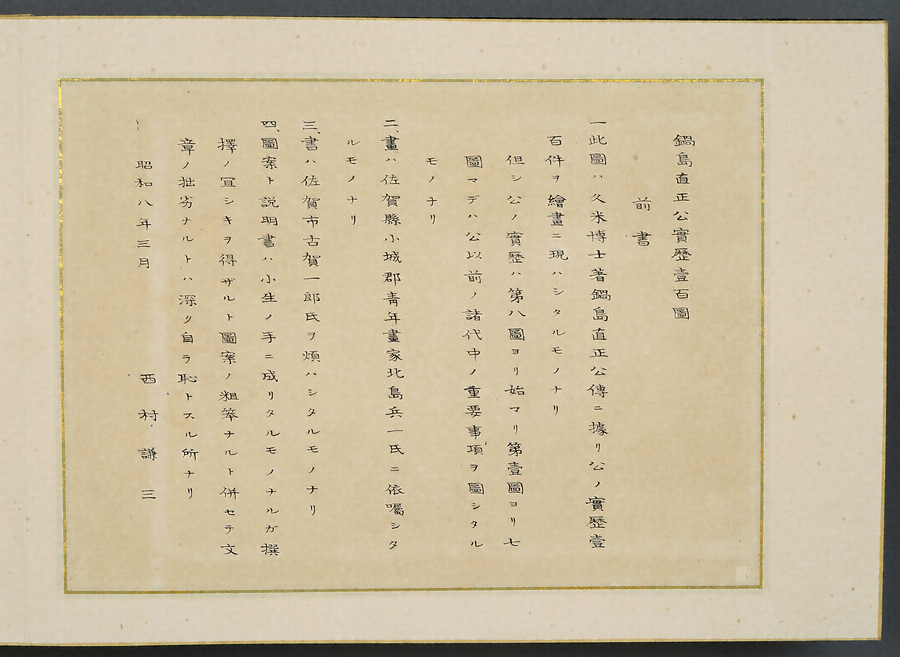 鍋島直正公實歷壹百圖
前書
一此圖ハ久米博士著鍋島直正公傳ニ據リ公ノ實歷壹
百件ヲ繪畫ニ現ハシタルモノナリ
但シ公ノ實歷ハ第八圖ヨリ始マリ第壹圖ヨリ七
圖マデハ公以前ノ諸代中ノ重要事項ヲ圖シタル
モノナリ
二、畫ハ佐賀縣小城郡靑年畫家北島兵一氏ニ依囑シタ
ルモノナリ
三、書ハ佐賀市古賀一郞氏ヲ煩ハシタルモノナリ
四、圖案ト説明書ハ小生ノ手ニ成リタルモノナルガ撰
擇ノ宜シキヲ得ザルト圖案ノ粗笨ナルト併セテ文
章ノ拙劣ナルトハ深ク自ラ恥トスル所ナリ
昭和八年三月
西村謙三